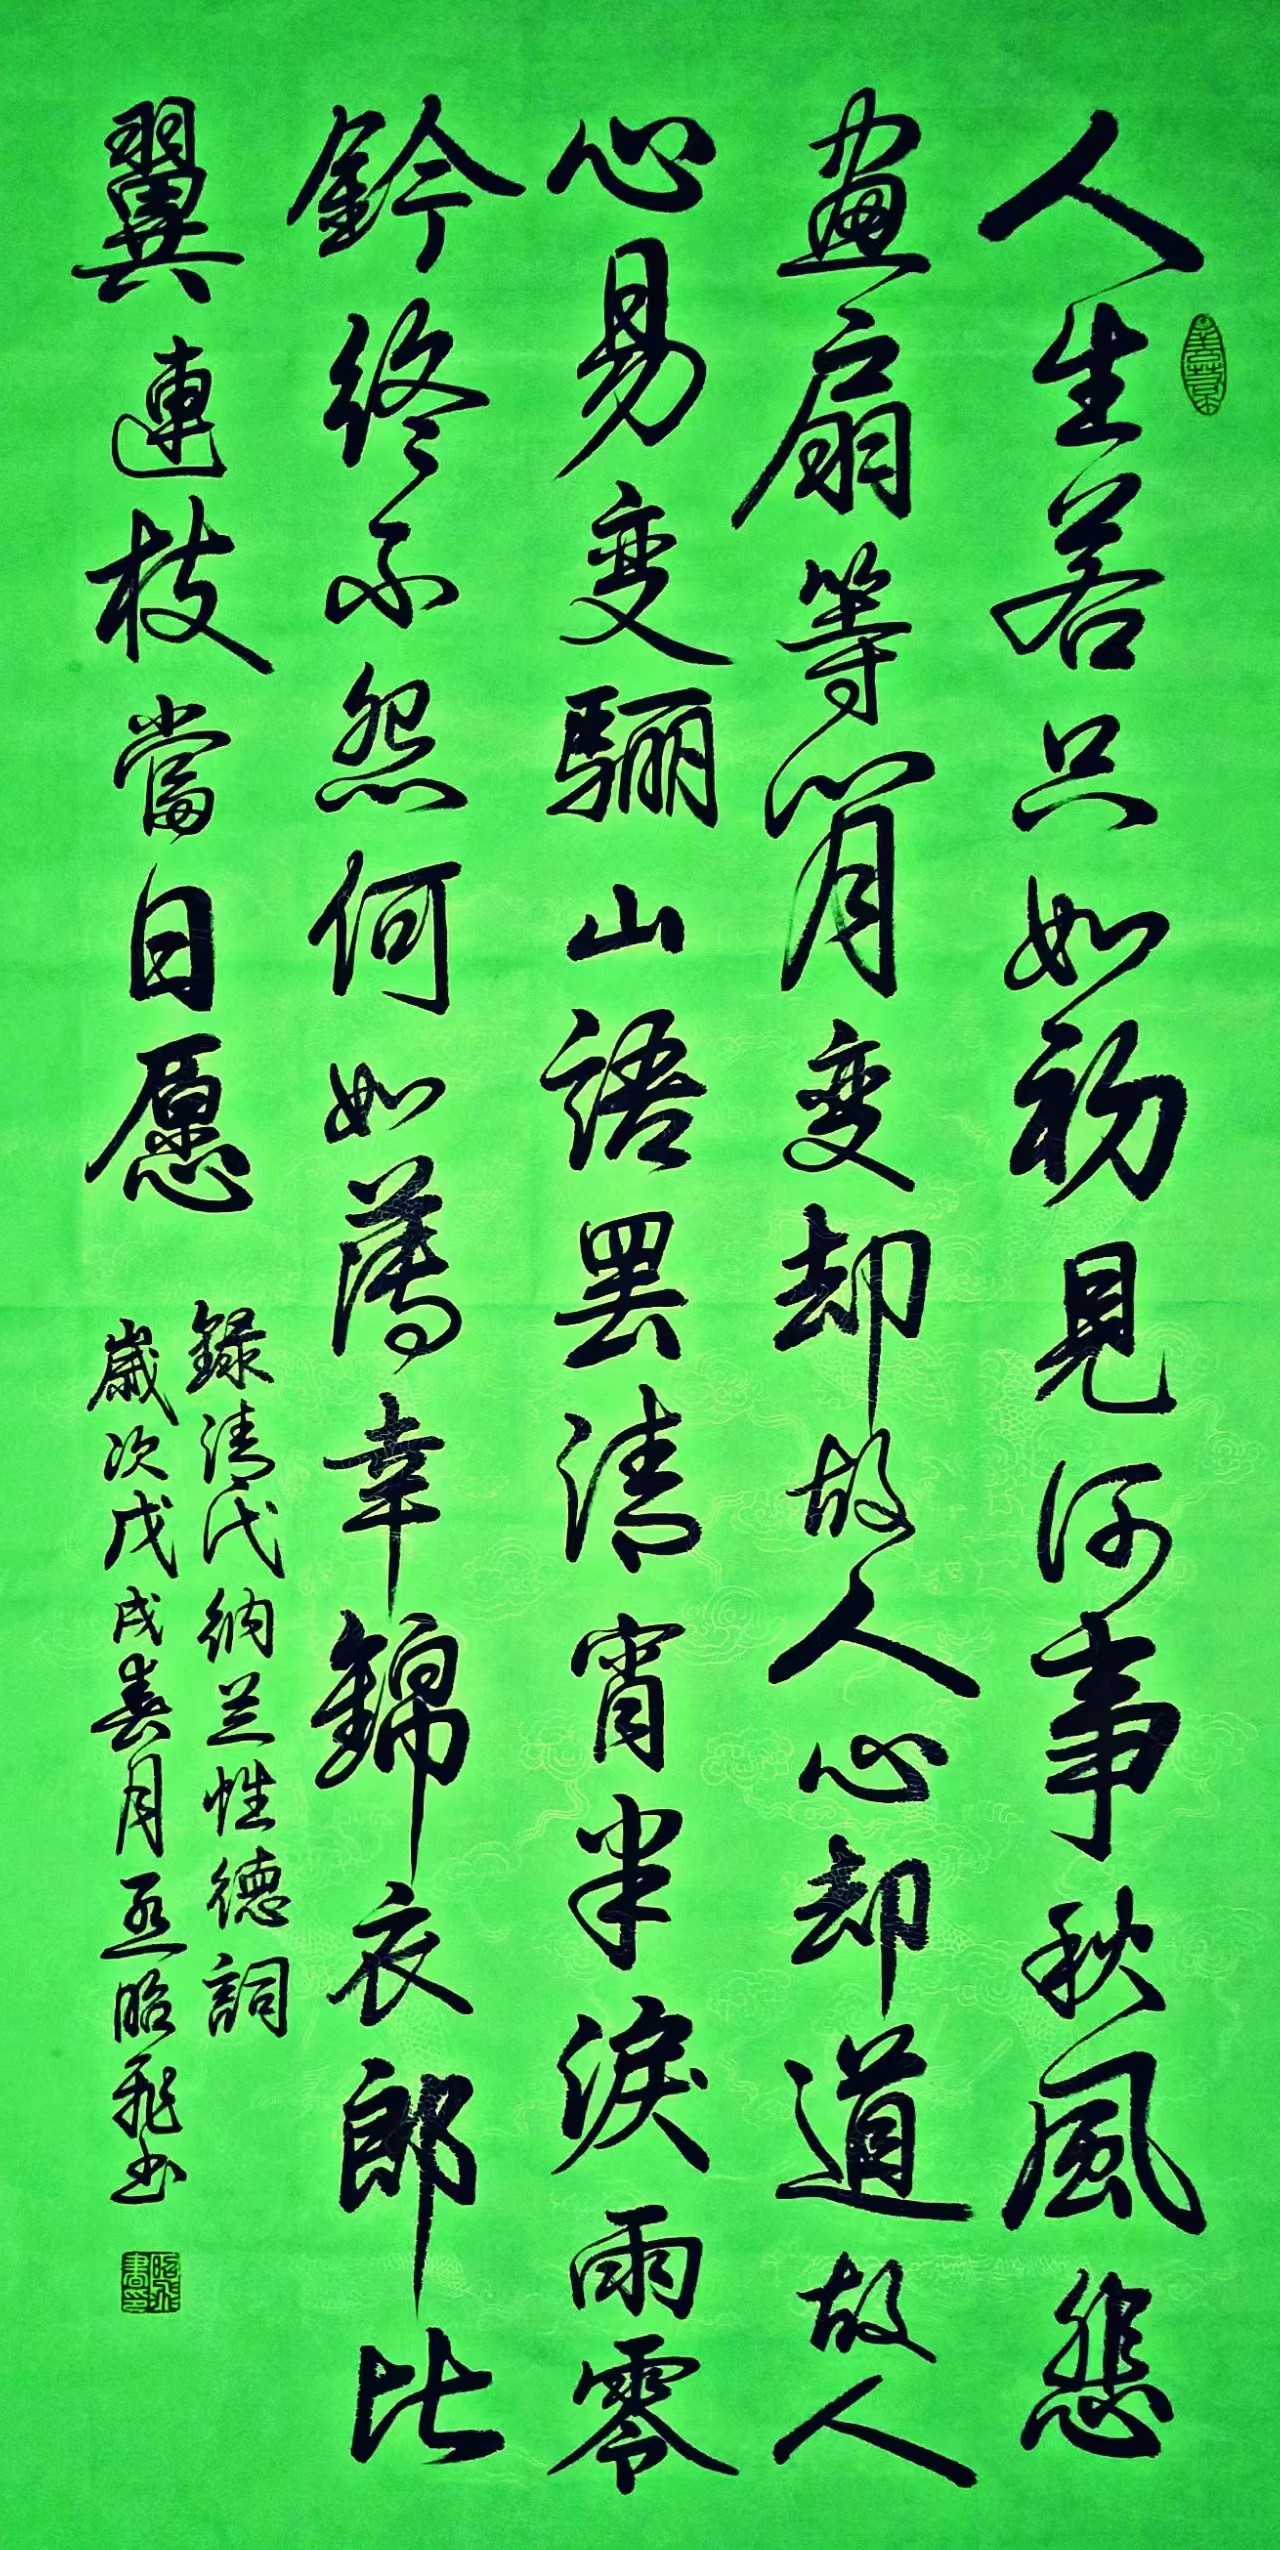 人生若只如初見何事秋風悲
畫扇等閒变却故人心却道故人
心易变骊山語罢清宵半淚雨零
鈴终不怨何如薄幸錦衣郎比
翼連枝當日愿
錄清代纳兰性德詞
歲次戊戌春月孟昭飛书